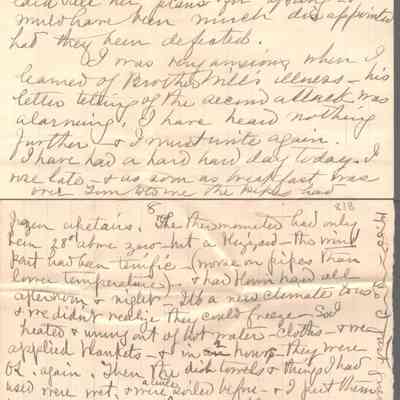 laid all her plans for going &
would have been much disappointed
had they been defeated.
I was very anxious when I
learned of Brother Will's illness – his
letter telling of the second attack was
alarning, I have heard nothing
further – & I must write again.
I have had a hard hard day today. I
rose late – & as soon as breakfast was
over told me the pipes had
8 818
frozen upstairs. The thermometer had only
been 28° above zero – but a Blizzard – the wind
part had been terrific – (worse on pipes than
lower temperature) – & had blown hard all
afternoon & night – It's a new climate to us
& we didn't realize they could freeze – So I
heated & wrung out of hot water – Cloths – & we
applied blankets – & in 2 hours – they were
OK. again. Then the dish towels & things I had
used were wet, & were a little soiled before – & I put them